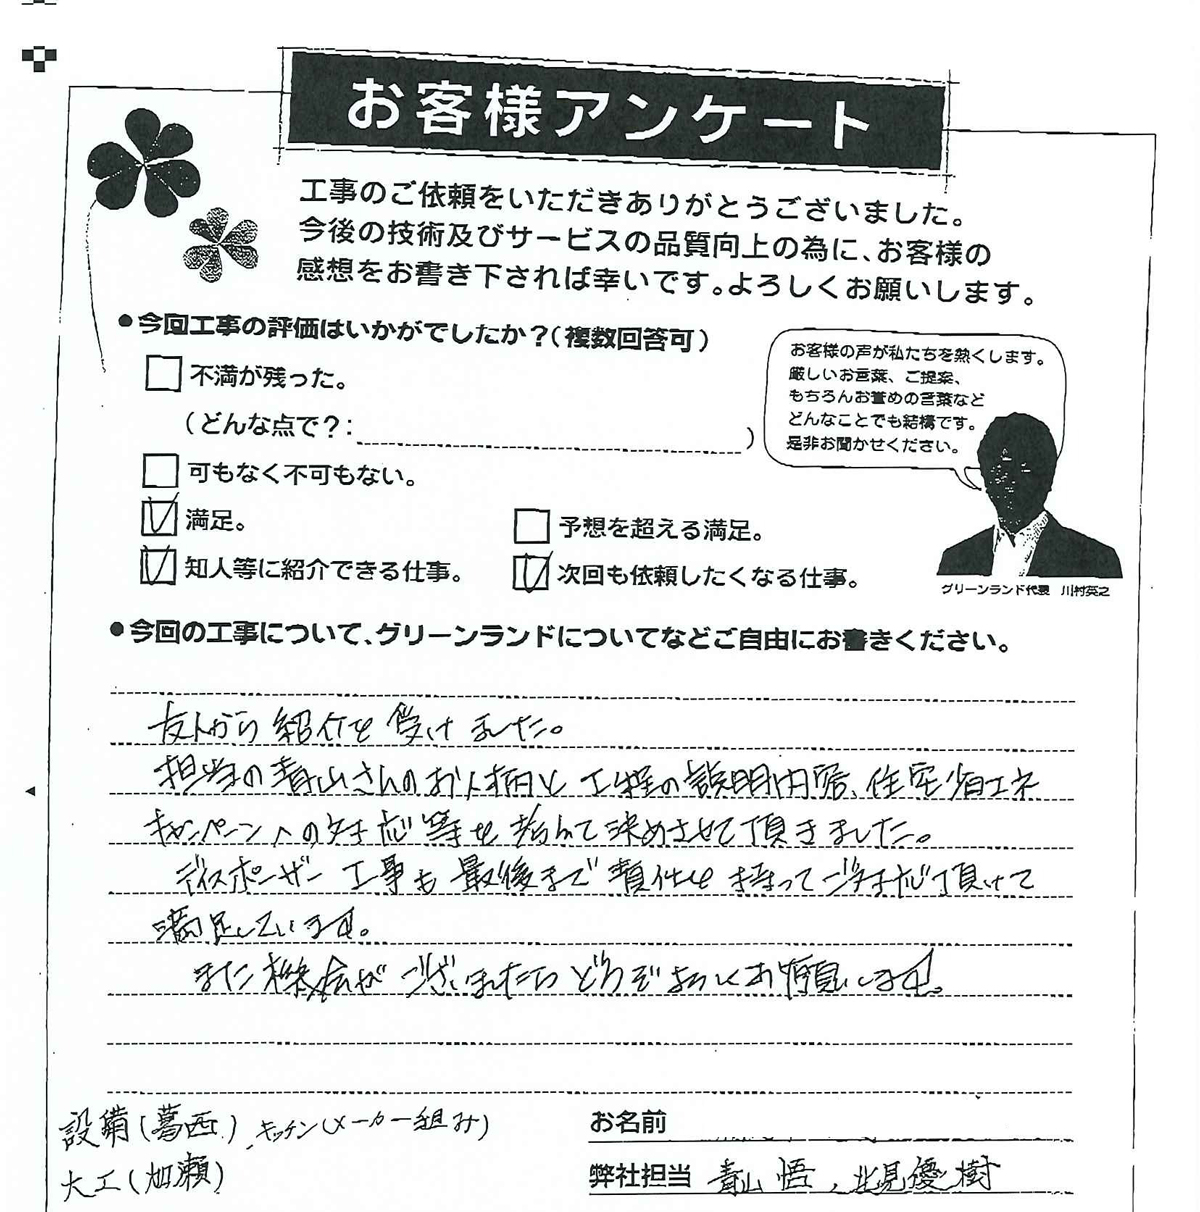 お客様アンケート
工事のご依頼をいただきありがとうございました。
今後の技術及びサービスの品質向上の為に、お客様の
感想をお書き下されば幸いです。よろしくお願いします。
●今回工事の評価はいかがでしたか？（複数回答可）
不満が残った。
（どんな点で？: ）
可もなく不可もない。
満足。
予想を超える満足。
知人等に紹介できる仕事。
次回も依頼したくなる仕事。
お客様の声が私たちを熱くします。
厳しいお言葉、ご提案、
もちろんお誉めの言葉など
どんなことでも結構です。
是非お聞かせください。
グリーンランド代表　川村英之
●今回の工事について、グリーンランドについてなどご自由にお書きください。
友人から紹介を受けました。
担当の青山さんのお人柄と工程の説明内容、住宅省エネ
キャンペーンへの対応等を含めて決めさせて頂きました。
ディスポーザー工事も最後まで責任を持ってご対応頂けて
満足しています。
また機会がございましたらどうぞよろしくお願いします。
設備(葛西) キッチン(メーカー組み)
大工(加瀬)
お名前
弊社担当 青山 悟、北見優樹